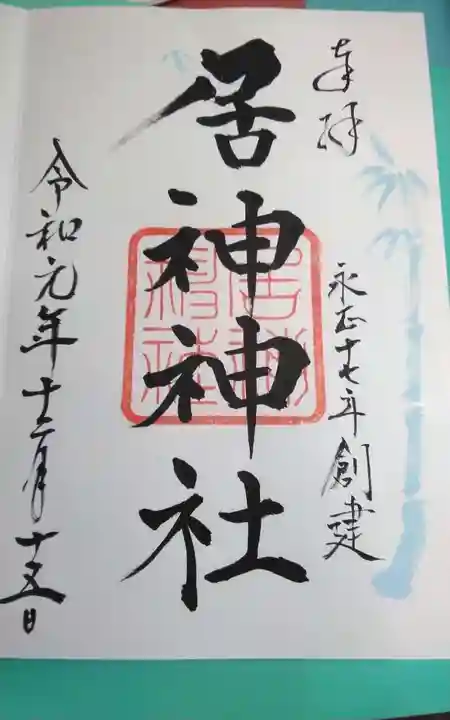 奉拝
永正十七年創建
居神神社
居神神社
令和元年十二月十五日